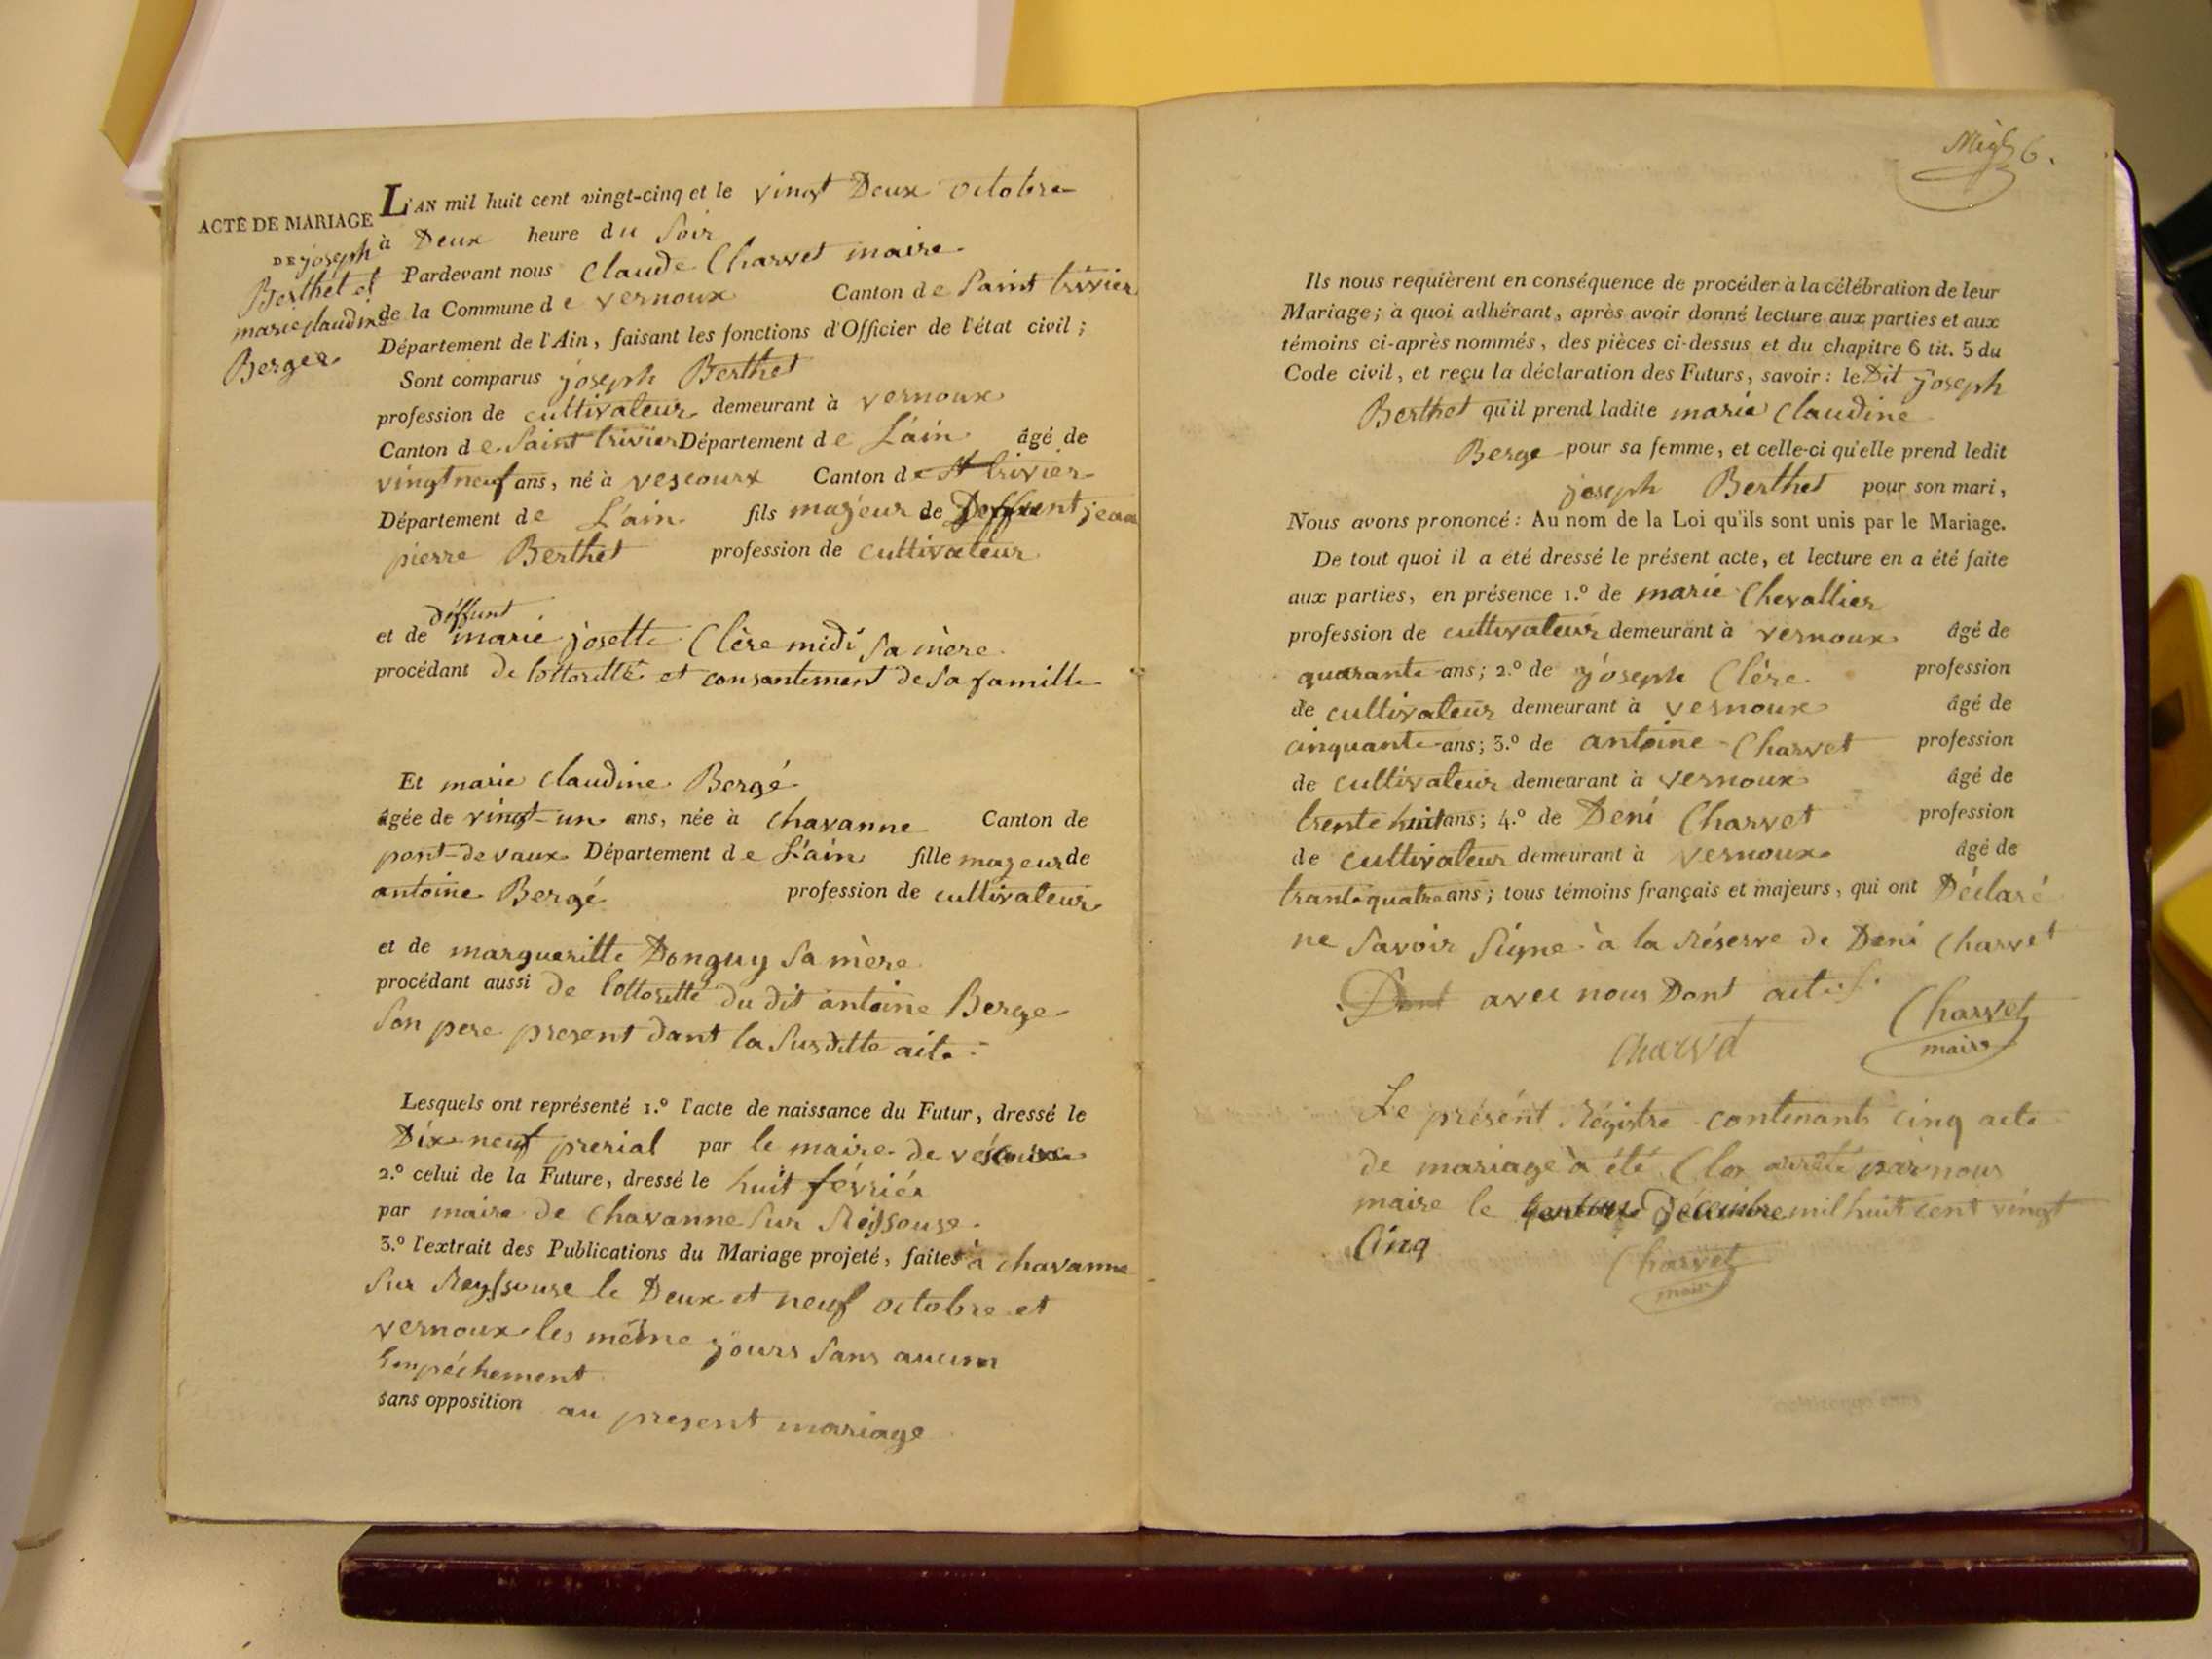 L'AN mil huit cent vingt-cinq et le vingt Deux octobre
ACTE DE MARIAGE
DE joseph
Berthet et
marie claudine
Berger
à Deux heure du Soir
Pardevant nous Claude Charvet maire
de la Commune de vernoux Canton de Saint trivier
Département de l'Ain, faisant les fonctions d'Officier de l'état civil ;
Sont comparus joseph Berthet
profession de cultivateur demeurant à vernoux
Canton de Saint trivier Département de L'ain âgé de
vingt neuf ans, né à vescourx Canton de St trivier
Département de L'ain fils majeur de Deffunt jean
pierre Berthet profession de cultivateur
déffunt
et de marie josette Clère midi sa mère
procédant de lottoritté et consantement de sa famille
Et marie claudine Bergé
âgée de vingt-un ans, née à chavanne Canton de
pont-de vaux Département de L'ain fille mageur de
antoine Bergé profession de cultivateur
et de margueritte Donguy sa mère
procédant aussi de lottoritté du dit antoine Berge
son pere present dant la susditte acte
Lesquels ont représenté 1.º l'acte de naissance du Futur, dressé le
Dix-neuf prerial par le maire de véscoux
2.º celui de la Future, dressé le huit février
par maire de chavanne sur Réÿssouse
3.º l'extrait des Publications du Mariage projeté, faites à chavanne
sur Reyssouse le Deux et neuf octobre et
vernoux les même jours sans aucun
Empéchement
sans opposition au present mariage
6.
Ils nous requièrent en conséquence de procéder à la célébration de leur
Mariage ; à quoi adhérant, après avoir donné lecture aux parties et aux
témoins ci-après nommés, des pièces ci-dessus et du chapitre 6 tit. 5 du
Code civil, et reçu la déclaration des Futurs, savoir : le Dit joseph
Berthet qu'il prend ladite marie claudine
Berge pour sa femme, et celle-ci qu'elle prend ledit
joseph Berthet pour son mari,
Nous avons prononcé : Au nom de la Loi qu'ils sont unis par le Mariage.
De tout quoi il a été dressé le présent acte, et lecture en a été faite
aux parties, en présence 1.º de marie Chevallier
profession de cultivateur demeurant à vernoux âgé de
quarante ans ; 2.º de joseph Clère profession
de cultivateur demeurant à vernoux âgé de
cinquante ans ; 3.º de antoine Charvet profession
de cultivateur demeurant à vernoux âgé de
trente huit ans ; 4.º de Deni Charvet profession
de cultivateur demeurant à vernoux âgé de
trante quatre ans ; tous témoins français et majeurs, qui ont Déclaré
ne savoir signe à la réserve de Deni Charvet
Dont avec nous Dont acte
Charvet
maire
Charvet
Le présént Régistre contenant cinq acte
de mariage à été Clor arrêté par nous
maire le Décembre mil huit cent vingt
Cinq
Charvet
maire